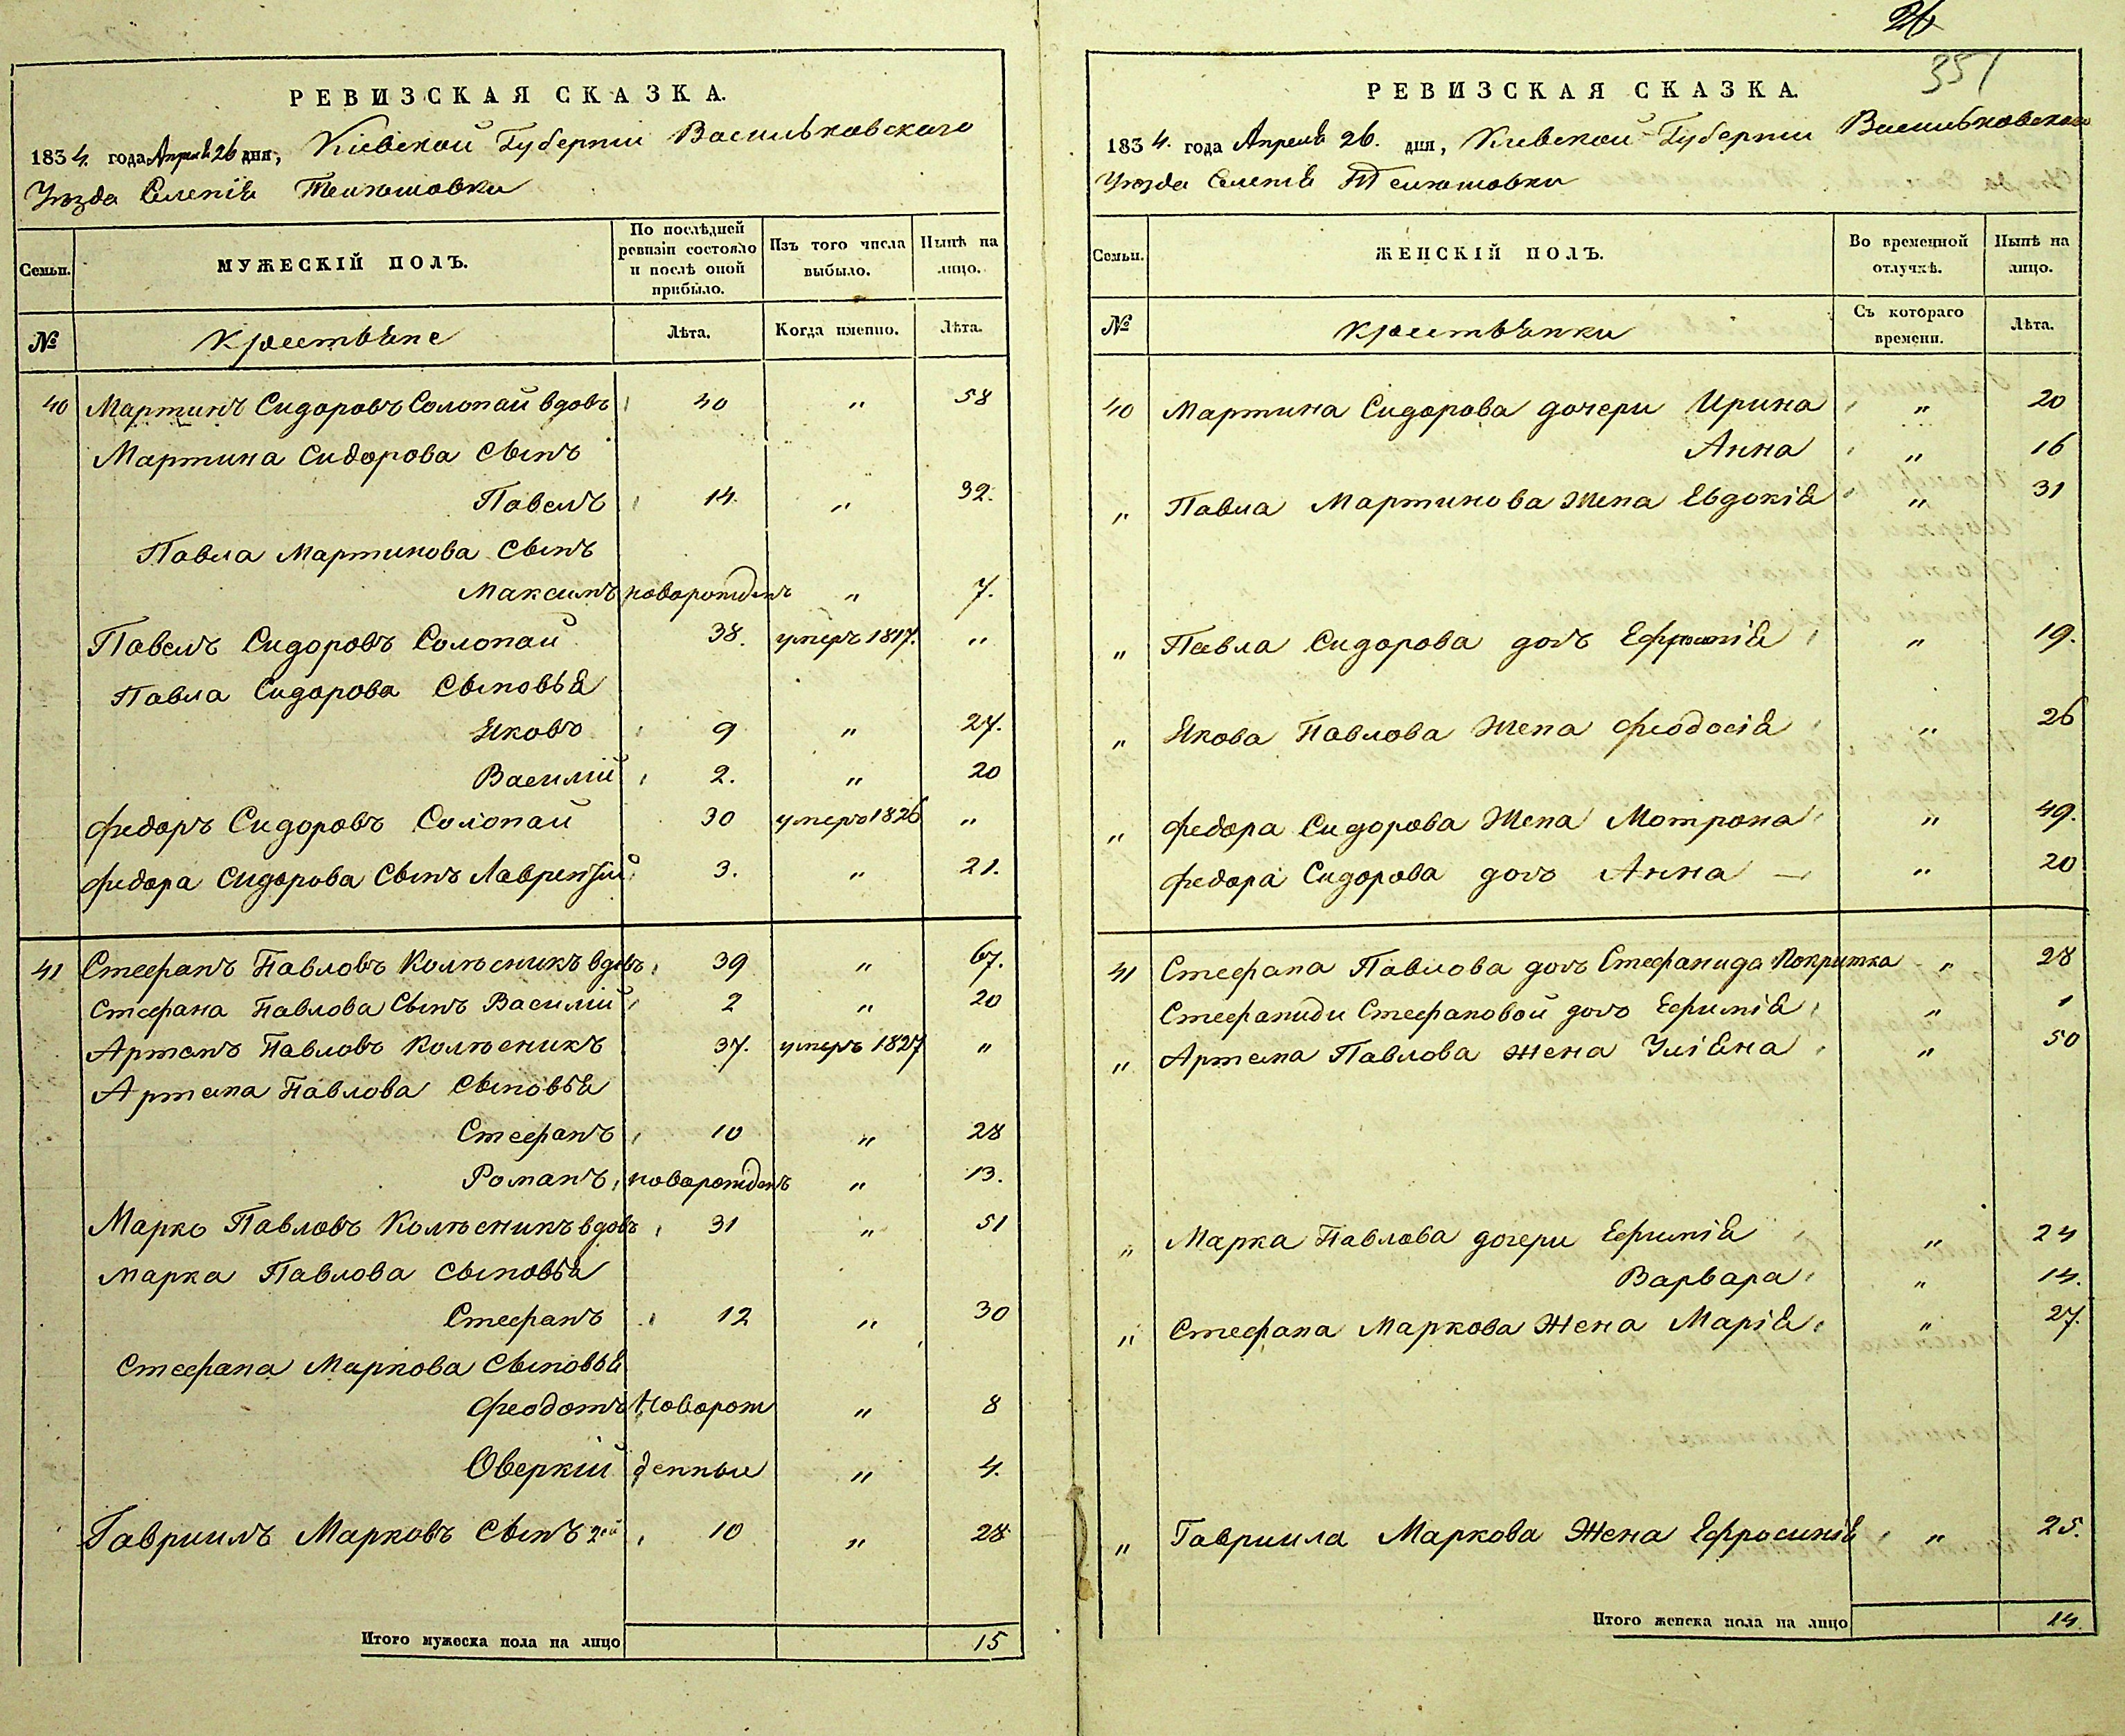 26
351
РЕВИЗСКАЯ СКАЗКА.
1834. года Апреля 26 дня, Кіевской Губерніи Васильковскаго
Уѣзда Селенія Телюшовки
Семьи.
МУЖЕСКІЙ ПОЛЪ.
По послѣдней ревизіи состояло и послѣ оной прибыло.
Изъ того числа выбыло.
Нынѣ на лицо.
№
Крестьяне
Лѣта.
Когда именно.
Лѣта.
40 Мартинъ Сидоровъ Солопай вдовъ 40 " 58
Мартина Сидорова Сынъ
Павелъ 14 " 32.
Павла Мартинова Сынъ
Максимъ новорожденъ " 7.
Павелъ Сидоровъ Солопай 38. умеръ 1817. "
Павла Сидорова Сыновья
Яковъ 9 " 27.
Василій 2. " 20
Федоръ Сидоровъ Солопай 30 умеръ 1826 "
Федора Сидорова Сынъ Лаврентій 3. " 21.
41 Стефанъ Павловъ Колѣсникъ вдовъ 39 " 67.
Стефана Павлова Сынъ Василій 2 " 20
Артемъ Павловъ Колѣсникъ 37. умеръ 1827 "
Артема Павлова Сыновья
Стефанъ 10 " 28
Романъ новорожденъ " 13.
Марко Павловъ Колѣсникъ вдовъ 31 " 51
Марка Павлова Сыновья
Стефанъ 12 " 30
Стефана Маркова Сыновья
Феодотъ Новорож " 8
Оверкій денныи " 4.
Гавриилъ Марковъ Сынъ 2ой 10 " 28
Итого мужеска пола на лицо 15
РЕВИЗСКАЯ СКАЗКА.
1834. года Апреля 26. дня, Кіевской Губерніи Васильковскаго
Уѣзда Селенія Телюшовки
Семьи.
ЖЕНСКІЙ ПОЛЪ.
Во временной отлучкѣ.
Нынѣ на лицо.
№
Крестьянки
Съ котораго времени.
Лѣта.
40 Мартина Сидорова дочери Ирина " 20
Анна " 16
" Павла Мартинова Жена Евдокія " 31
" Павла Сидорова дочь Ефросинія " 19.
" Якова Павлова Жена Феодосія " 26
" Федора Сидорова Жена Мотрона " 49.
Федора Сидорова дочь Анна " 20
41 Стефана Павлова дочь Стефанида Покритка " 28
Стефаниди Стефановой дочь Ефимія " 1
" Артема Павлова жена Уліяна " 50
" Марка Павлова дочери Ефимія " 24
Варвара " 14.
" Стефана Маркова Жена Марія " 27.
" Гавриила Маркова Жена Ефросинія " 25.
Итого женска пола на лицо 14.